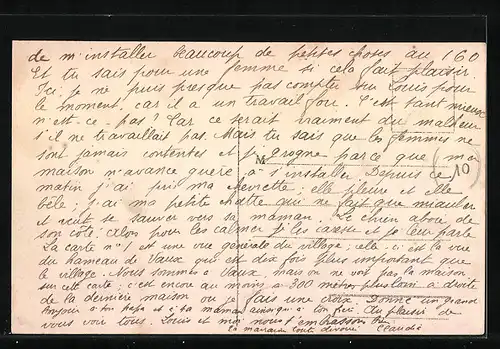 de m'installer beaucoup de petites choses au 160
Et tu sais pour une femme si cela fait plaisir.
Ici je ne puis presque pas compter sur Louis pour
le moment, car il a un travail fou. C'est tant mieux
n'est-ce-pas? Car ce serait vraiment du malheur
s'il ne travaillait pas. Mais tu sais que les femmes ne
sont jamais contentes et je grogne parce que ma
maison n'avance guère à s'installer. Depuis ce
10
matin j'ai pris ma chevrette; elle pleure et elle
bêle; j'ai ma petite chatte qui ne fait que miauler
et veut se sauver vers sa maman. Le chien aboie de
son côté. Alors pour les calmer je les caresse et je leur parle
La carte n°1 est une vue générale du village; celle-ci est la vue
du hameau de Vaux qui est dix fois plus important que
le village. Nous sommes à Vaux, mais on ne voit pas la maison
sur cette carte; c'est encore au moins à 300 mètres plus loin à droite
de la dernière maison où je fais une croix. Donne un grand
bonjour à ton papa et à ta maman ainsi qu'à ton frère. Au plaisir de
vous voir tous. Louis et moi nous t'embrassons bien
ta marraine toute dévouée Claudie